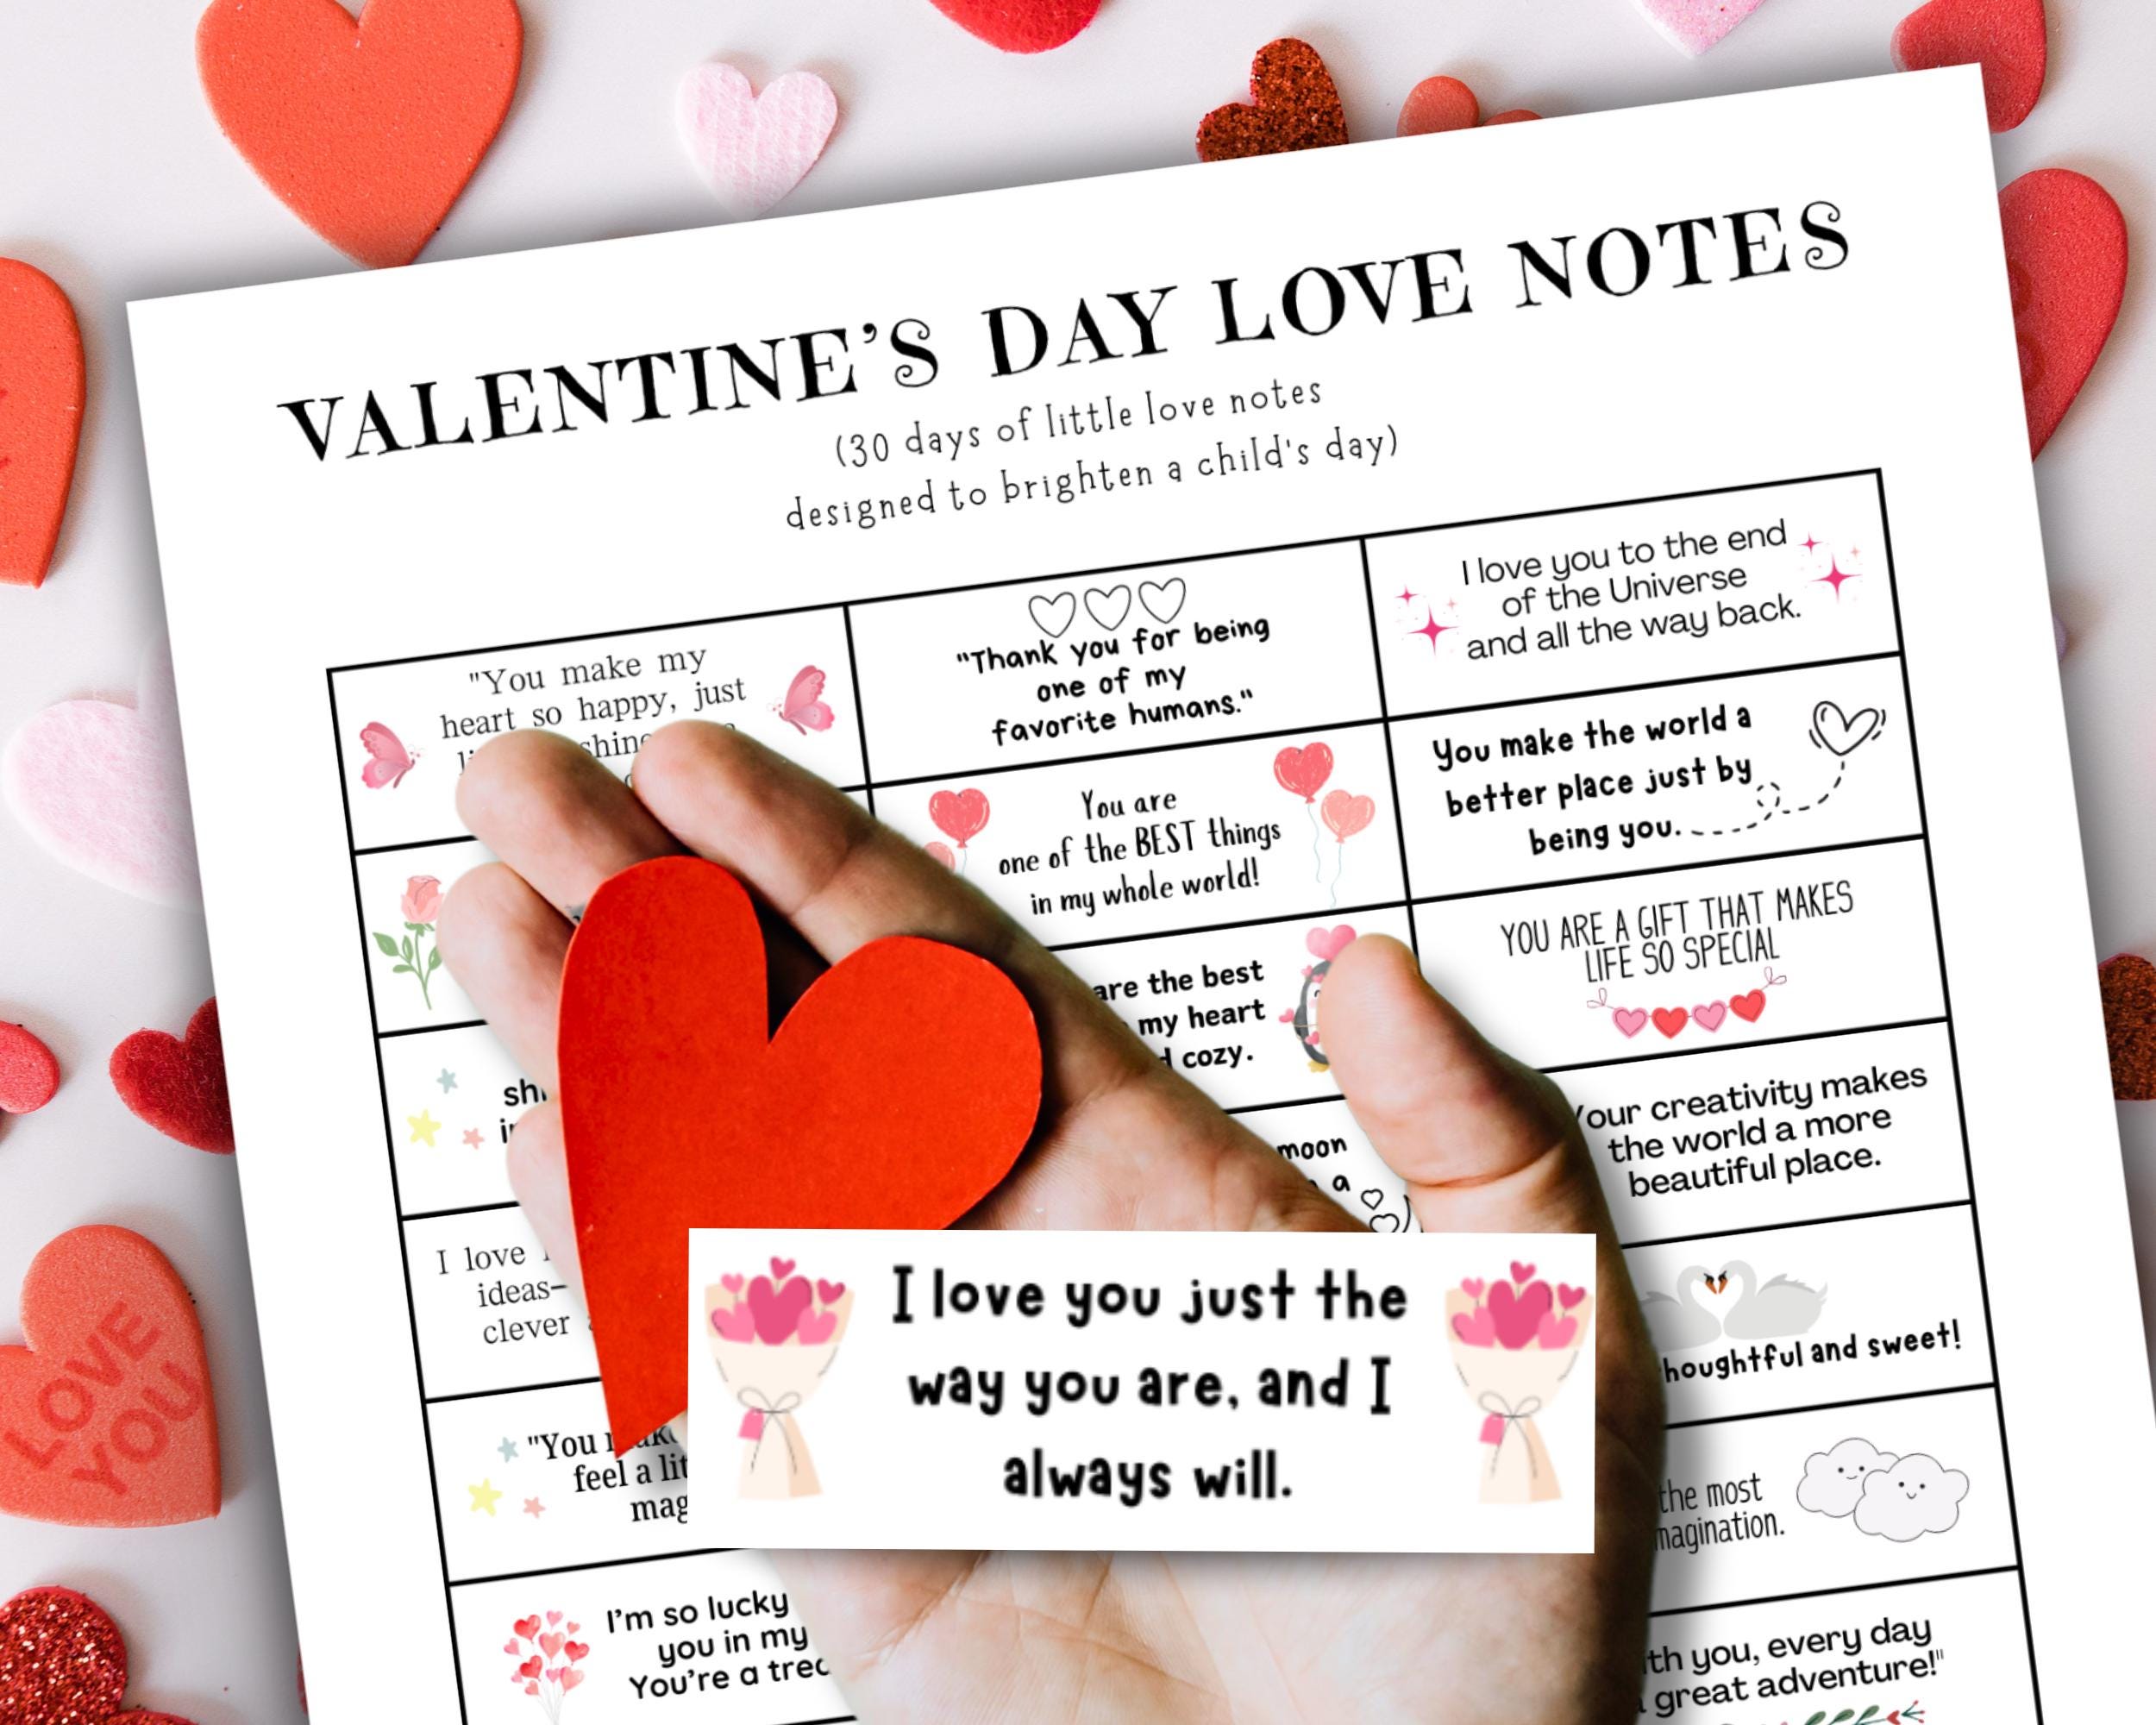 VALENTINE'S DAY LOVE NOTES
(30 days of little love notes
designed to brighten a child's day)
"You make my
heart so happy, just
"Thank you for being
one of my
favorite humans."
I love you to the end
of the Universe
and all the way back.
You are
one of the BEST things
in my whole world!
You make the world a
better place just by
being you.
are the best
my heart
cozy.
YOU ARE A GIFT THAT MAKES
LIFE SO SPECIAL
moon
a
Your creativity makes
the world a more
beautiful place.
I love
ideas–
clever
thoughtful and sweet!
"You make
feel a
the most
imagination.
I love you just the
way you are, and I
always will.
I'm so lucky
you in my
You're a
with you, every day
great adventure!"
LOVE
YOU